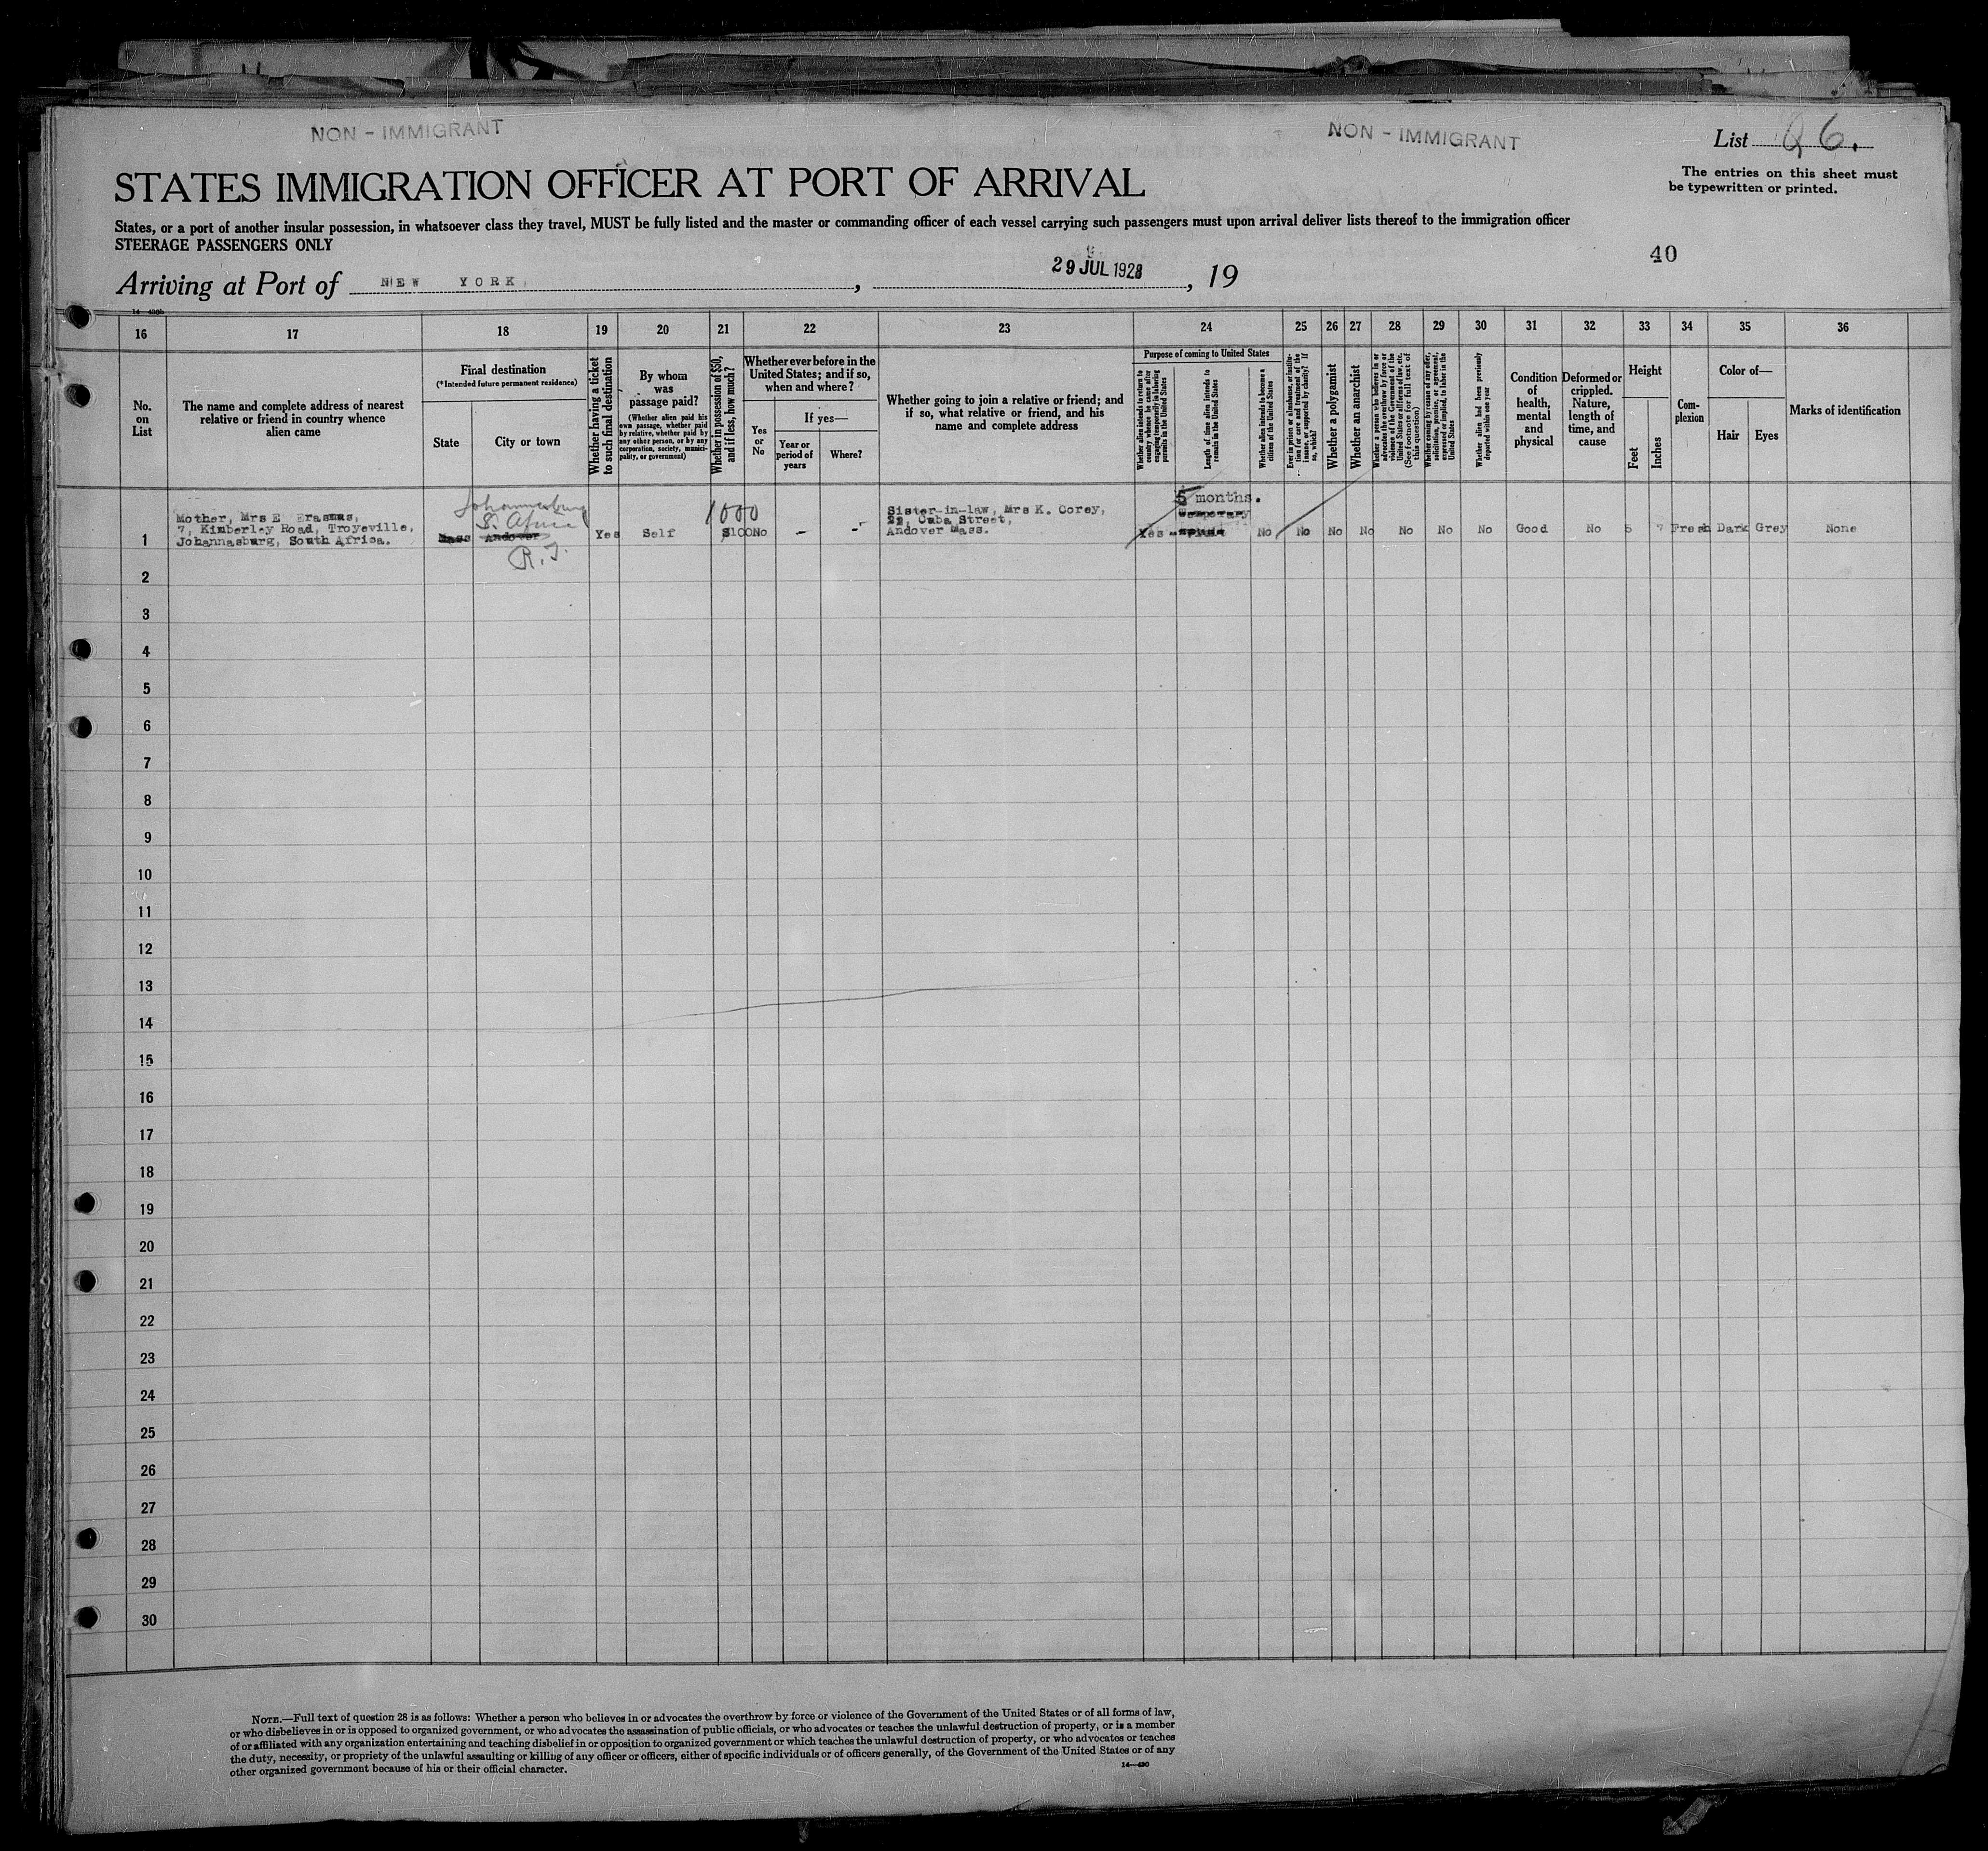 NON - IMMIGRANT
NON - IMMIGRANT
List 26.
STATES IMMIGRATION OFFICER AT PORT OF ARRIVAL
The entries on this sheet must
be typewritten or printed.
States, or a port of another insular possession, in whatsoever class they travel, MUST be fully listed and the master or commanding officer of each vessel carrying such passengers must upon arrival deliver lists thereof to the immigration officer
STEERAGE PASSENGERS ONLY
40
Arriving at Port of NEW YORK, 29 JUL 1928, 19
16 17 18 19 20 21 22 23 24 25 26 27 28 29 30 31 32 33 34 35 36
No.
on
List
The name and complete address of nearest
relative or friend in country whence
alien came
Final destination
(*Intended future permanent residence)
State
City or town
Whether having a ticket
to such final destination
By whom
was
passage paid?
(Whether alien paid his
own passage, whether paid
by relative, whether paid by
any other person, or by any
corporation, society, munici-
pality, or government)
Whether in possession of $50,
and if less, how much?
Whether ever before in the
United States; and if so,
when and where?
Yes
or
No
If yes—
Year or
period of
years
Where?
Whether going to join a relative or friend; and
if so, what relative or friend, and his
name and complete address
Purpose of coming to United States
Whether alien intends to return to
country whence he came after
engaging temporarily in laboring
pursuits in the United States
Length of time alien intends to
remain in the United States
Whether alien intends to become a
citizen of the United States
Ever in prison or almshouse, or institu-
tion for care and treatment of the
insane, or supported by charity? If
so, which?
Whether a polygamist
Whether an anarchist
Whether a person who believes in or
advocates the overthrow by force or
violence of the Government of the
United States or all forms of law, etc.
(See footnote for full text of
this question)
Whether coming by reason of any offer,
solicitation, promise, or agreement,
expressed or implied, to labor in the
United States
Whether alien had been previously
deported within one year
Condition
of
health,
mental
and
physical
Deformed or
crippled.
Nature,
length of
time, and
cause
Height
Feet
Inches
Com-
plexion
Color of—
Hair
Eyes
Marks of identification
1
Mother, Mrs E Erasmus,
7, Kimberley Road, Troyeville,
Johannasburg, South Africa.
Johannesburg
S. Africa
Mass Andover
Yes Self
1000
$100 No - -
Sister-in-law, Mrs K. Corey,
22, Cuba Street,
Andover Mass.
5 months.
Temporary
Yes No No No No No No No Good No 5 7 Fresh Dark Grey None
2
3
4
5
6
7
8
9
10
11
12
13
14
15
16
17
18
19
20
21
22
23
24
25
26
27
28
29
30
NOTE.—Full text of question 28 is as follows: Whether a person who believes in or advocates the overthrow by force or violence of the Government of the United States or of all forms of law,
or who disbelieves in or is opposed to organized government, or who advocates the assassination of public officials, or who advocates or teaches the unlawful destruction of property, or is a member
of or affiliated with any organization entertaining and teaching disbelief in or opposition to organized government or which teaches the unlawful destruction of property, or who advocates or teaches
the duty, necessity, or propriety of the unlawful assaulting or killing of any officer or officers, either of specific individuals or of officers generally, of the Government of the United States or of any
other organized government because of his or their official character.
14—430